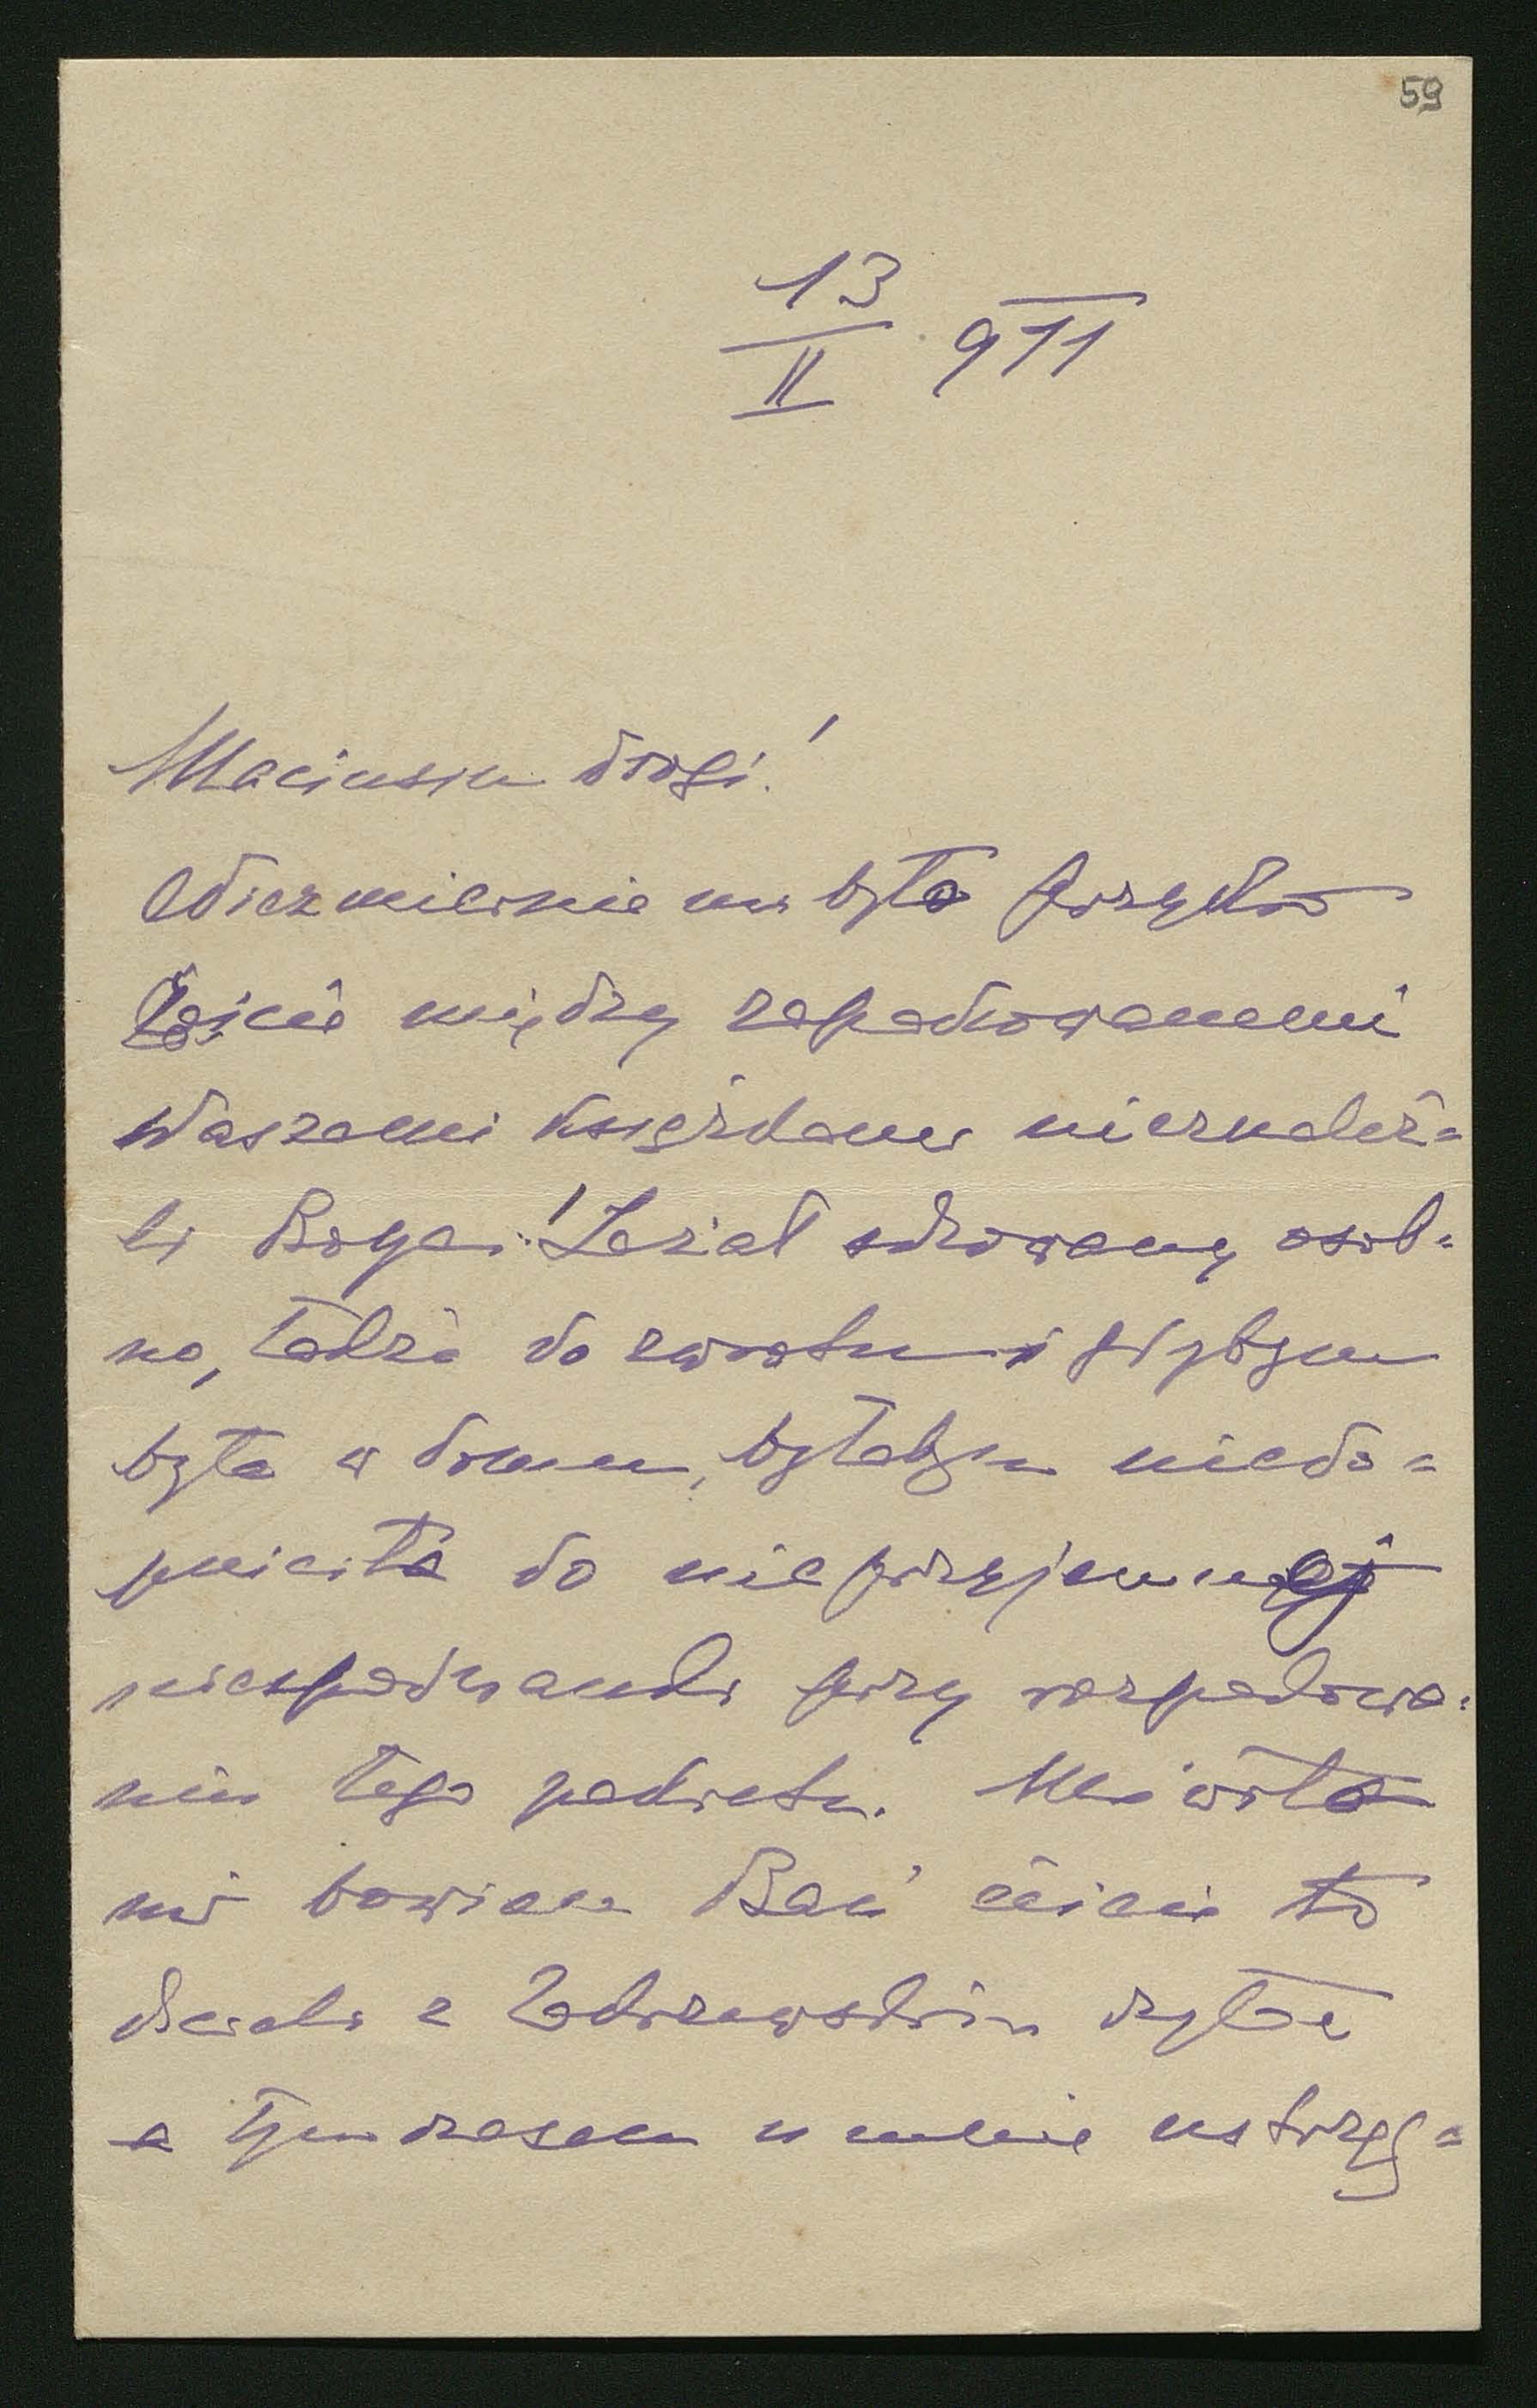 59
13
II 911
Maciusiu drogi!
Niezmiernie mi było przykro
żeście między zapakowanemi
Waszemi książkami nieznaleź=
li Boya! Leżał schowany osob=
no, także do zwrotu i gdybym
była w domu, byłabym niedo=
puściła do nieprzyjemnej
niespodzianki przy rozpakowa=
niu tego pakietu. Mówiła
mi bowiem Bań żeście to
chcieli z Zakrzewskim czytać
a tymczasem u mnie ustrzęg=